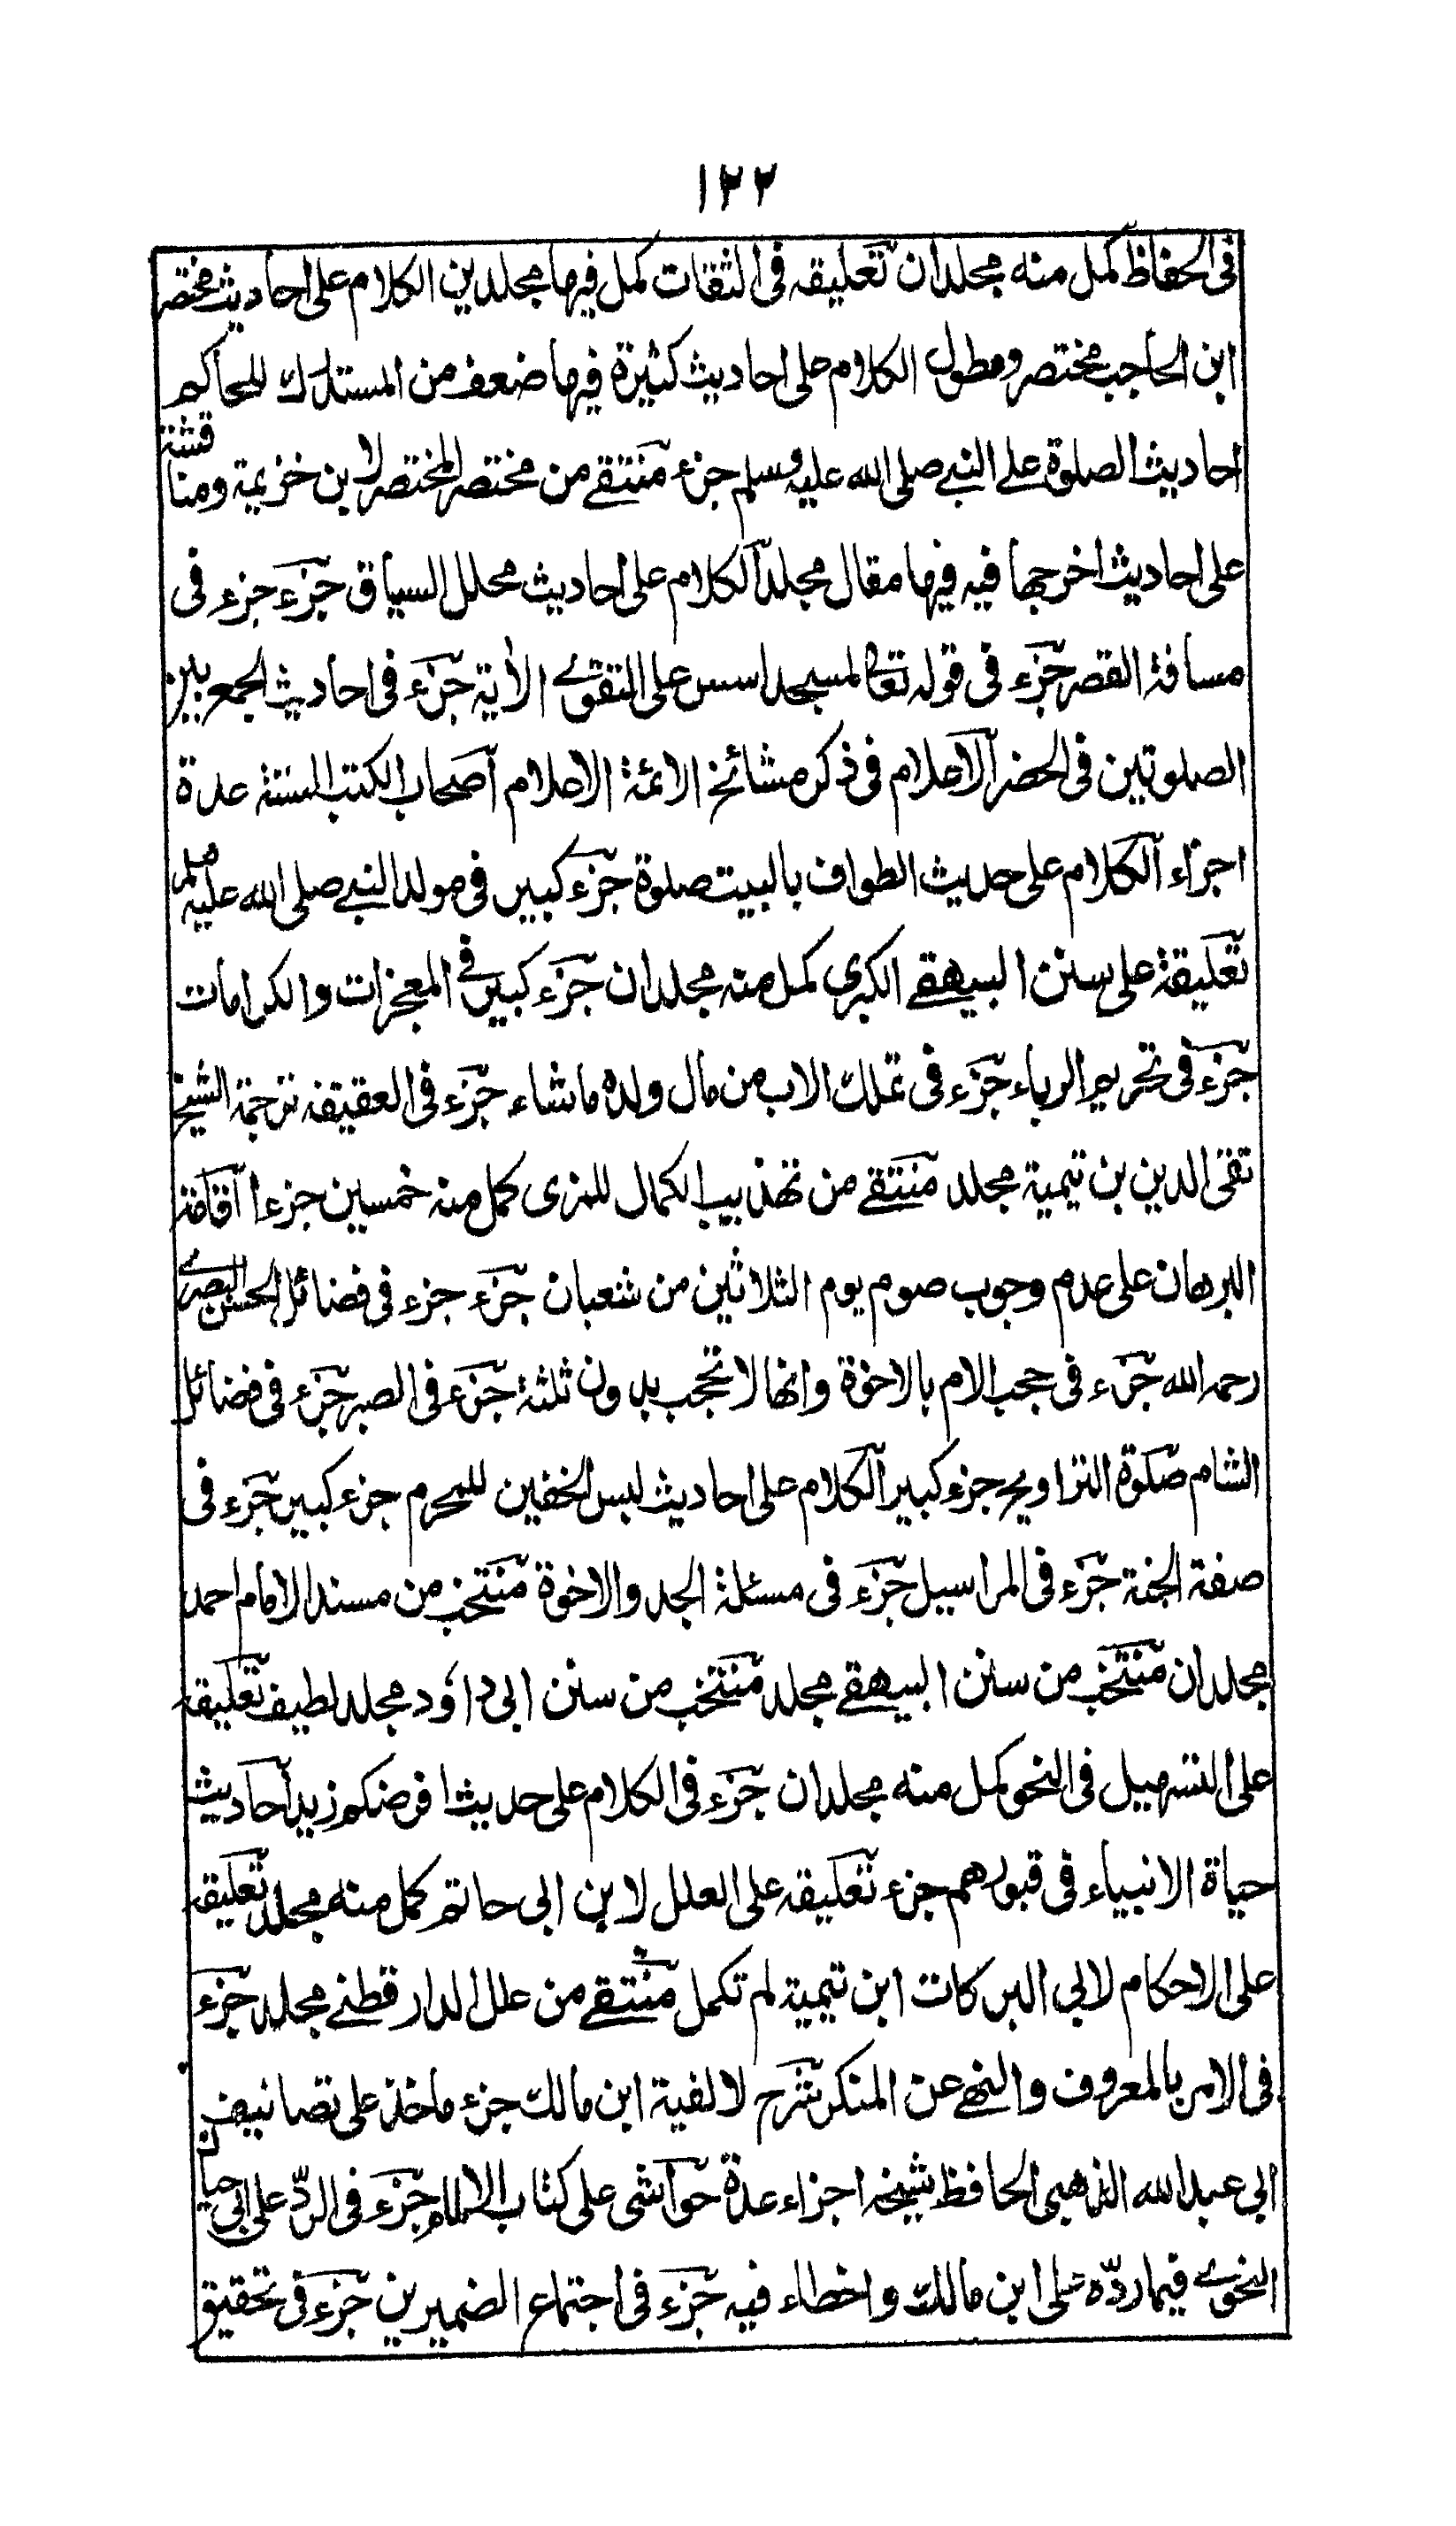 ١٢٢
فى الحفاظ كمل منه مجلدان تعليقه فى الثقات كمل فيها مجلدين الكلام على احاديث مختصر
ابن الحاجب مختصر ومطول الكلام على احاديث كثيرة فيها ضعف من المستدرك للحاكم
احاديث الصلوة على النبي صلى الله عليه وسلم جزء منتقے من مختصر المختصر لابن خزيمة ومناقشته
على احاديث اخرجها فيه فيها مقال مجلد الكلام على احاديث محلل السباق جزء جزء فى
مسافة القصر جزء فى قوله تعالى لمسجد اسس على التقوے الأية جزء فى احاديث الجمع بين
الصلوتين فى الحضر الاعلام فى ذكر مشائخ الائمة الاعلام اصحاب الكتب الستة عدة
اجزاء الكلام على حديث الطواف بالبيت صلوة جزء كبير فى مولد النبي صلى الله عليه وسلم
تعليقة على سنن البيهقے الكبرى كمل منه مجلدان جزء كبير فى المعجزات والكرامات
جزء فى تحريم الرباء جزء فى تملك الاب من مال ولده ماشاء جزء فى العقيقه ترجمة الشيخ
تقى الدين بن تيمية مجلد منتقے من تهذيب الكمال للمزى كمل منه خمسين جزءا اقامة
البرهان على عدم وجوب صوم يوم الثلاثين من شعبان جزء جزء فى فضائل الحسن البصرے
رحمه الله جزء فى حجب الام بالاخوة وانها لا تحجب بدون ثلثة جزء فى الصبر جزء فى فضائل
الشام صلوة التراويح جزء كبير الكلام على احاديث لبس الخفين للمحرم جزء كبير جزء فى
صفة الجنة جزء فى المراسيل جزء فى مسئلة الجد والاخوة منتخب من مسند الامام احمد
مجلدان منتخب من سنن البيهقے مجلد منتخب من سنن ابى داؤد مجلد لطيف تعليقه
على التسهيل فى النحو كمل منه مجلدان جزء فى الكلام على حديث افرضكم زيد احاديث
حياة الانبياء فى قبورهم جزء تعليقه على العلل لابن ابى حاتم كمل منه مجلد تعليقه
على الاحكام لابي البركات ابن تيمية لم تكمل منتقے من علل الدارقطنے مجلد جزء
فى الامر بالمعروف والنهے عن المنكر شرح لالفية ابن مالك جزء ماخذ على تصانيف
ابى عبد الله الذهبى الحافظ شيخه اجزاء عدة حواشى على كتاب الالمام جزء فى الردّ على ابى حيان
النحوے فيما ردّه على ابن مالك واخطاء فيه جزء فى اجتماع الضميرين جزء فى تحقيق